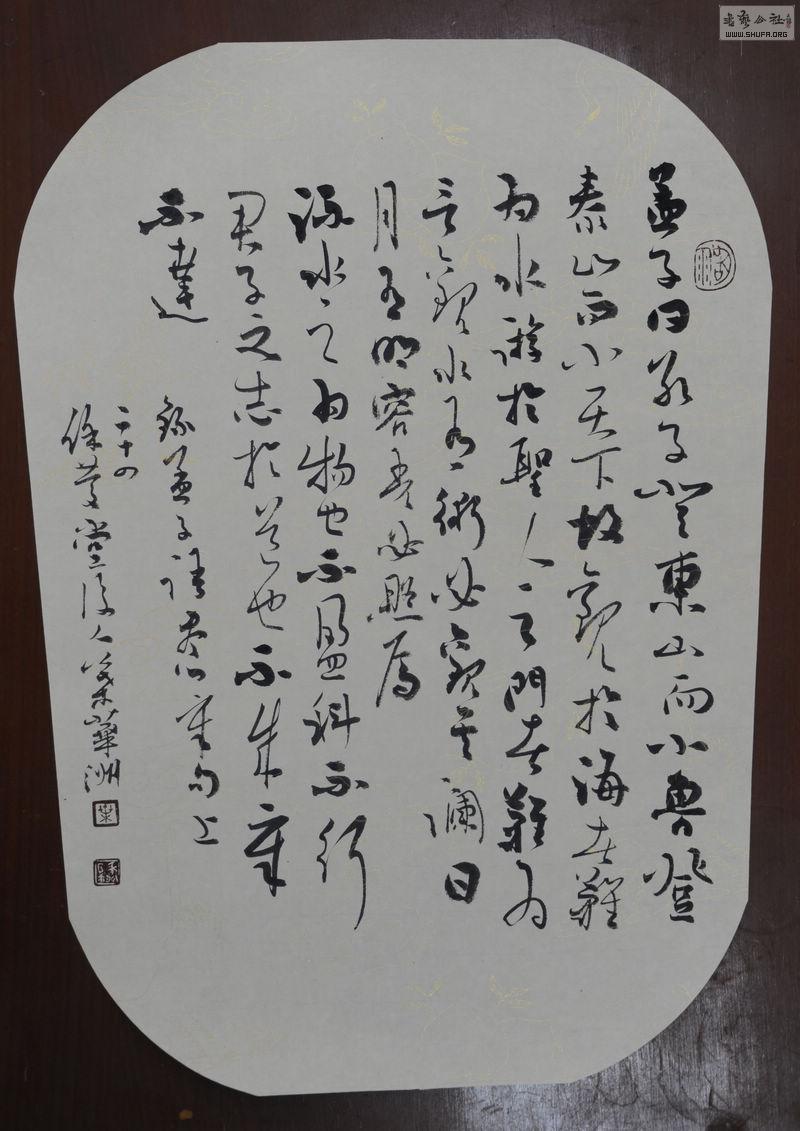 孟子曰孔子登東山而小魯登
泰山而小天下故觀於海者難
為水游於聖人之門者難為
言觀水有術必觀其瀾日
月有明容光必照焉
流水之為物也不盈科不行
君子之志於道也不成章
不達
錄孟子語盡心章句上
二十四
餘慶堂後人葉華洲
葉
書藝公社
WWW.SHUFA.ORG